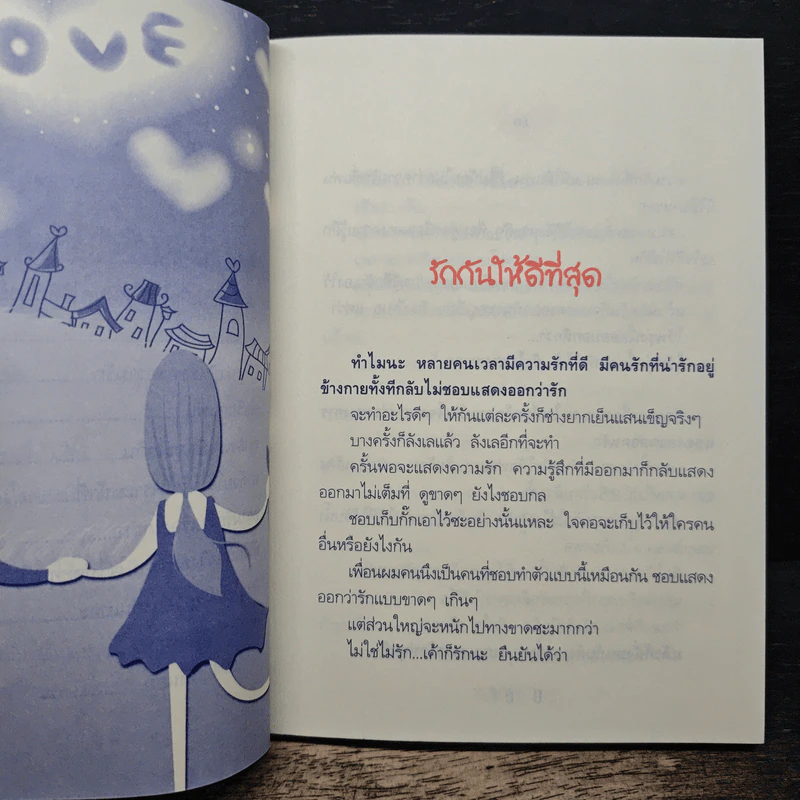 OVE
รักกันให้ดีที่สุด
ทำไมนะ หลายคนเวลามีความรักที่ดี มีคนรักที่น่ารักอยู่
ข้างกายทั้งทีกลับไม่ชอบแสดงออกว่ารัก
จะทำอะไรดีๆ ให้กันแต่ละครั้งก็ช่างยากเย็นแสนเข็ญจริงๆ
บางครั้งก็ลังเลแล้ว ลังเลอีกที่จะทำ
ครั้นพอจะแสดงความรัก ความรู้สึกที่มีออกมาก็กลับแสดง
ออกมาไม่เต็มที่ ดูขาดๆ ยังไงชอบกล
ชอบเก็บกั๊กเอาไว้ซะอย่างนั้นแหละ ใจคอจะเก็บไว้ให้ใครคน
อื่นหรือยังไงกัน
เพื่อนผมคนนึงเป็นคนที่ชอบทำตัวแบบนี้เหมือนกัน ชอบแสดง
ออกว่ารักแบบขาดๆ เกินๆ
แต่ส่วนใหญ่จะหนักไปทางขาดซะมากกว่า
ไม่ใช่ไม่รัก...เค้าก็รักนะ ยืนยันได้ว่า